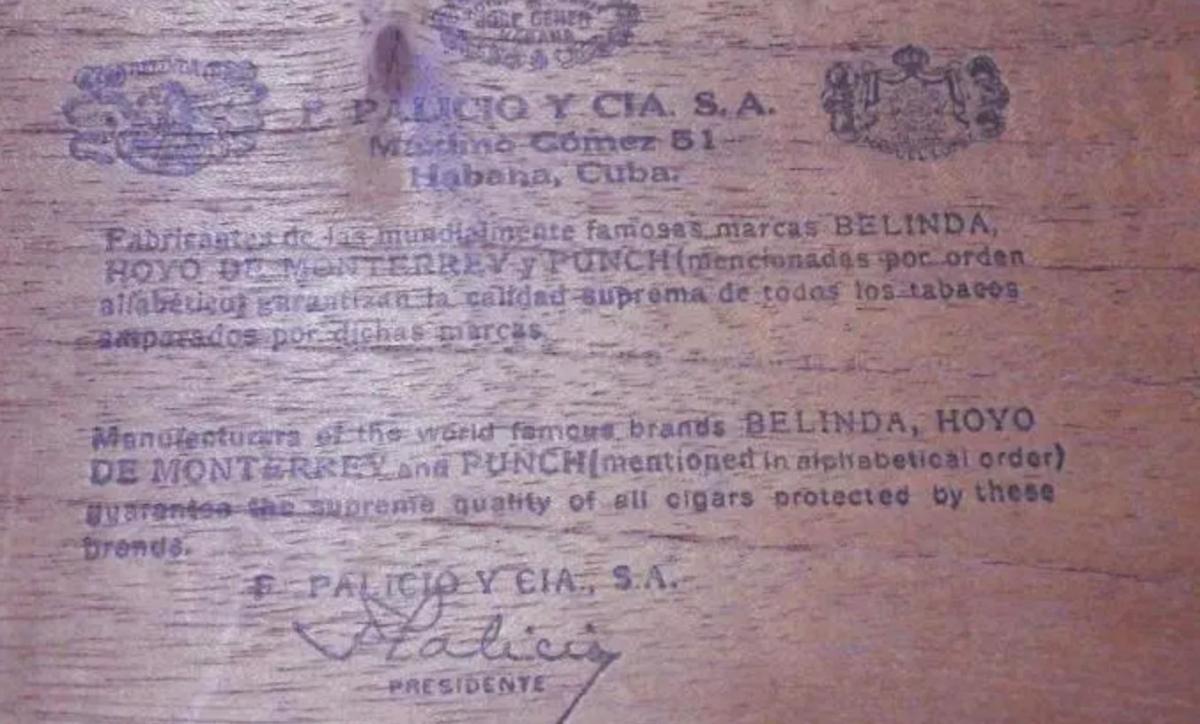 JOSE GENER
HABANA
F. PALICIO Y CIA. S. A.
Maximo Gómez 51
Habana, Cuba.
Fabricantes de las mundialmente famosas marcas BELINDA,
HOYO DE MONTERREY y PUNCH (mencionadas por orden
alfabético) garantizan la calidad suprema de todos los tabacos
amparados por dichas marcas.
Manufacturers of the world famous brands BELINDA, HOYO
DE MONTERREY and PUNCH (mentioned in alphabetical order)
guarantee the supreme quality of all cigars protected by these
brands.
F. PALICIO Y CIA., S.A.
Palicio
PRESIDENTE